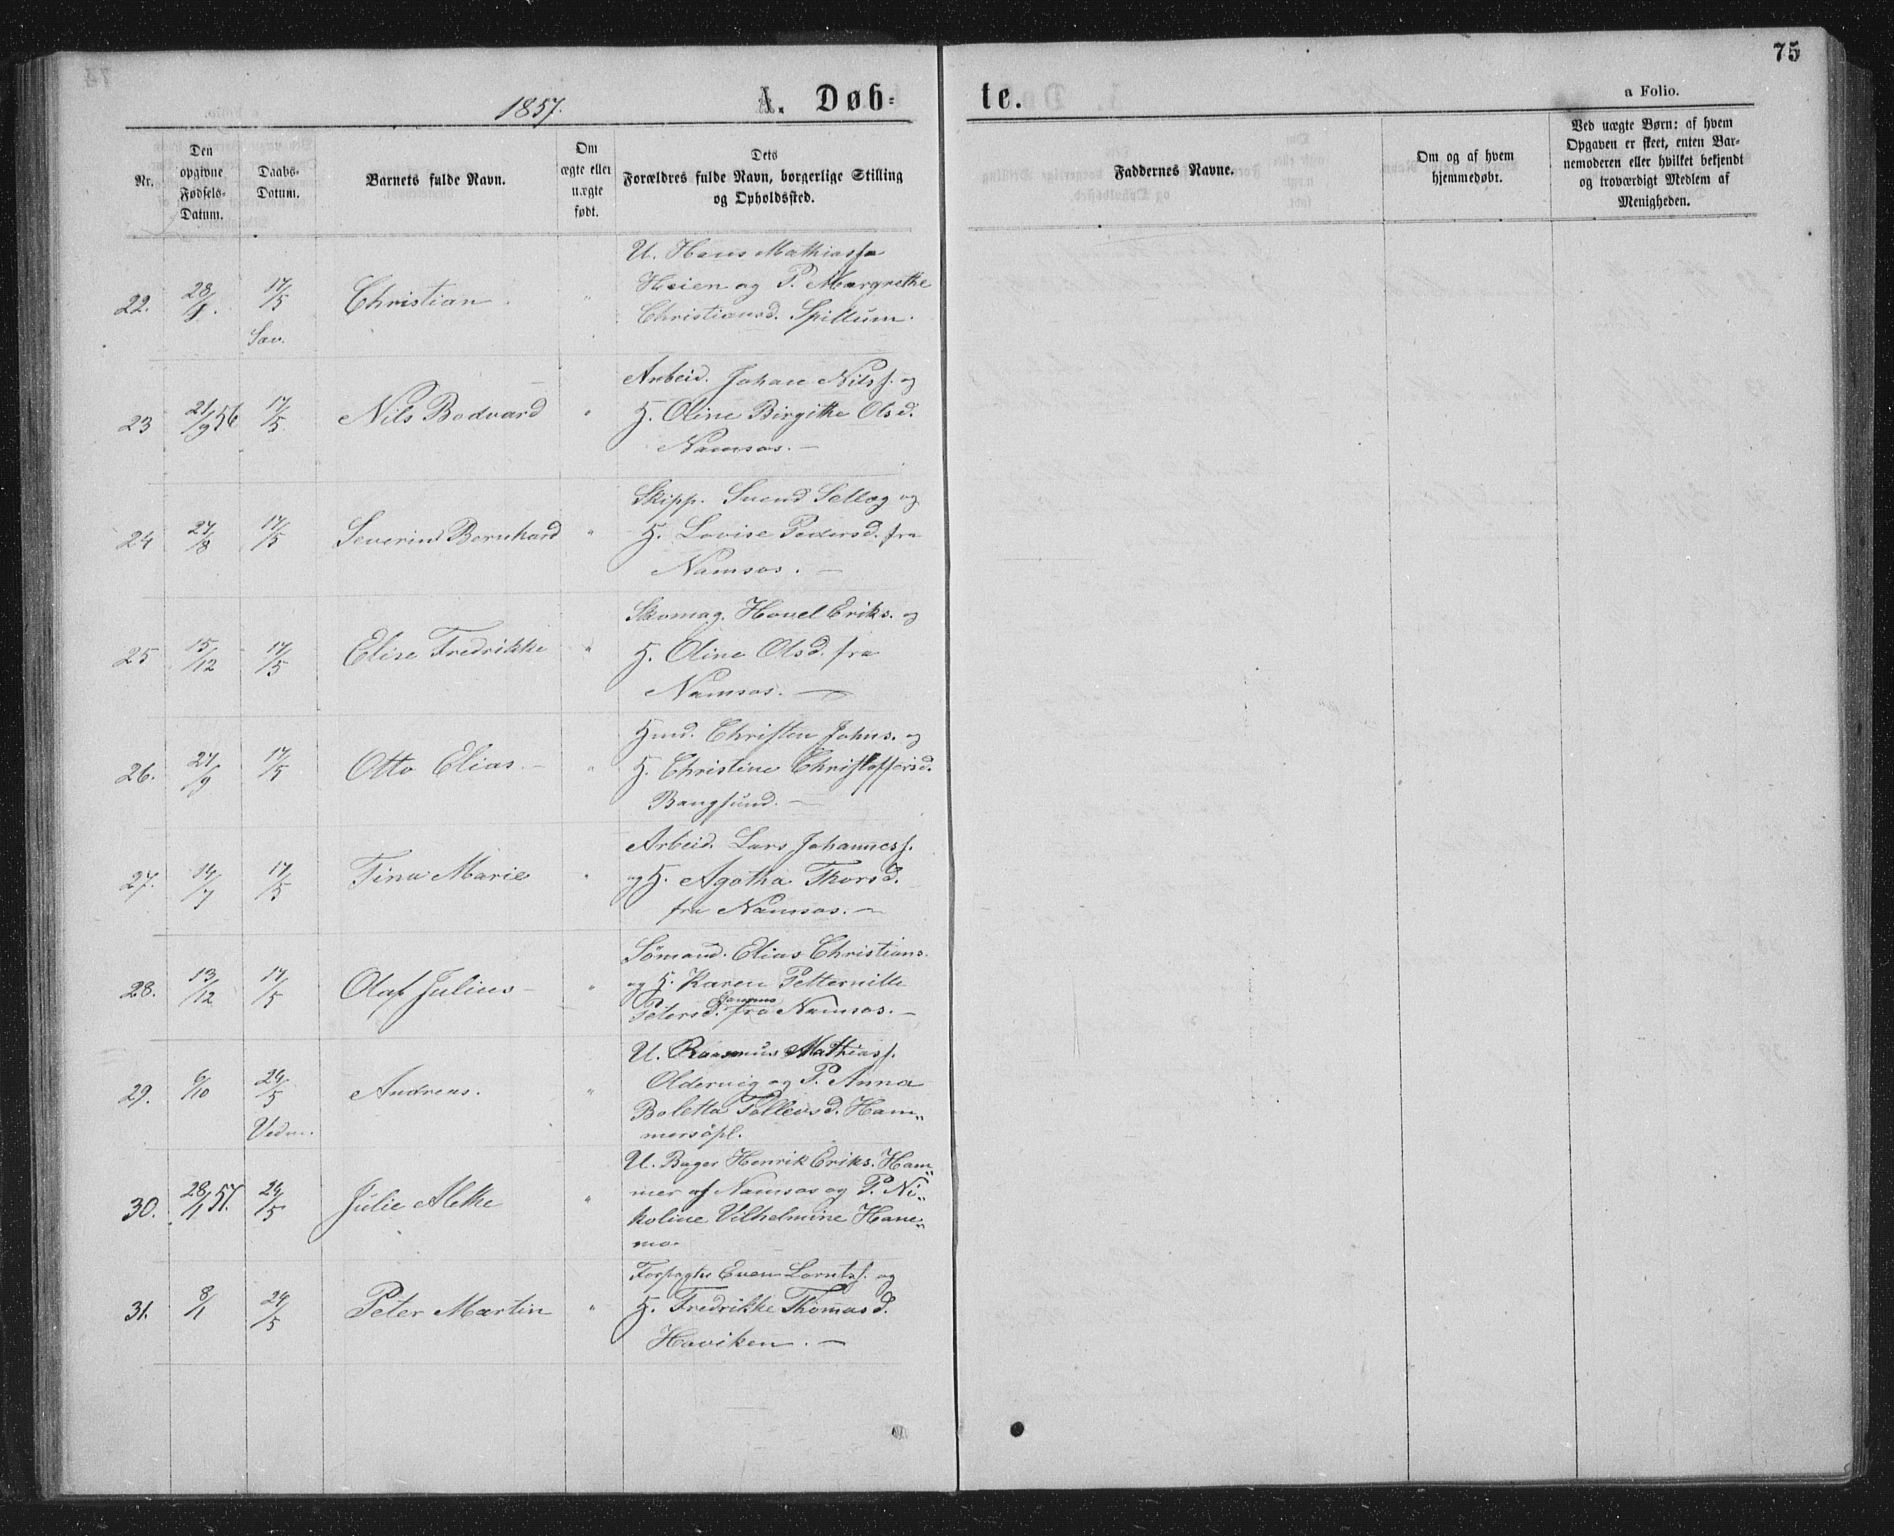 75
1857.
A. Døb-
te.
a Folio.
Nr.
Den
opgivne
Fødsels-
Datum.
Daabs-
Datum.
Barnets fulde Navn.
Om
ægte eller
uægte
født.
Dets
Forældres fulde Navn, borgerlige Stilling
og Opholdssted.
Faddernes Navne.
Om og af hvem
hjemmedøbt.
Ved uægte Børn: af hvem
Opgaven er skeet, enten Bar-
nemoderen eller hvilket bekjendt
og troværdigt Medlem af
Menigheden.
U. Hans Mathiass
22. 28/8. 17/5 Christian . " Heien og P. Margrethe
Sav. Christiansd. Spillum.
Arbeid. Johan Nilss. og
23 21/9 56 17/5 Nils Bodvard " H. Oline Birgithe Olsd.
Namsos. —
Skipp. Svend Sellæg og
24 27/8 17/5 Severin Bernhard " H. Lovise Pedersd. fra
Namsos. —
Skomag. Hovel Eriks. og
25 15/12 17/5 Elise Fredrikke " H. Oline Olsd. fra
Namsos. —
Hmd. Christen Johns. og
26. 27/9 17/5 Otto Elias. — " H. Christine Christoffersd.
Bangsund. —
Arbeid. Lars Johanness.
27. 14/7 17/5 Tina Marie " og H. Agatha Thorsd.
fra Namsos. —
Sömand. Elias Christians.
28. 13/12 17/5 Olaf Julius — " og H. Karen Petternille
Petersd. fra Namsos. —
U. Rasmus Mathiass.
29. 6/10 24/5 Andreas. " Oldervig og P. Anna
Vedm. Boletta Tollevsd. Ham„
mersöpl.
U. Bager Henrik Eriks. Ham„
30. 28/1 57. 24/5 Julie Alethe " mer af Namsos og P. Ni„
koline Vilhelmine Hane„
mo.
Forpagter Even Lorntss. og
31. 8/1 24/5 Peter Martin " H. Fredrikke Thomasd.
Haviken. —